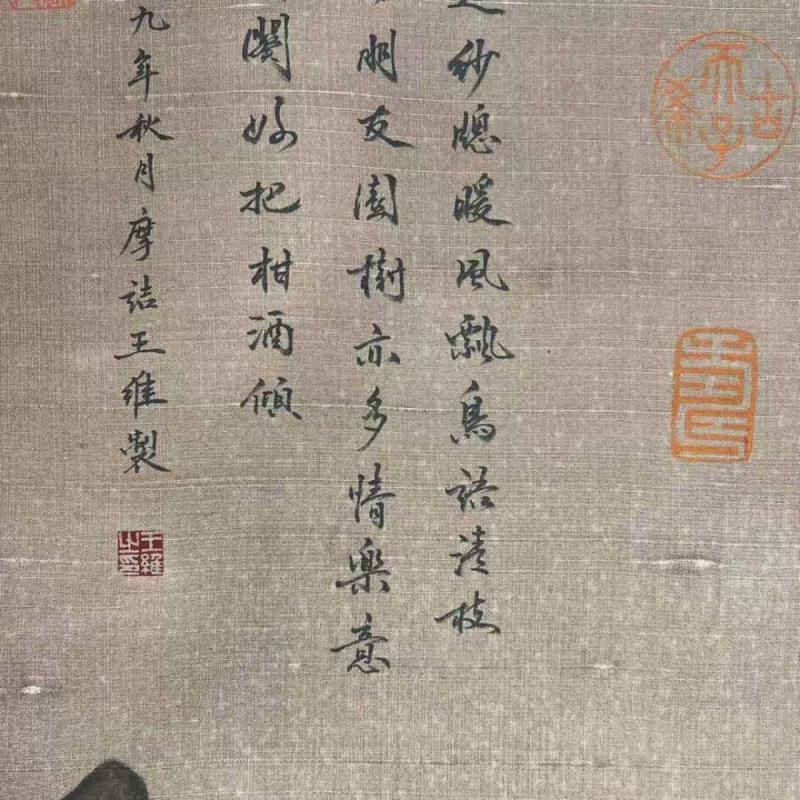 古希天子
紗牕暖風飄鳥語清枝
朋友園樹亦多情樂意
好把柑酒傾
九年秋月摩詰王維製
王維之印